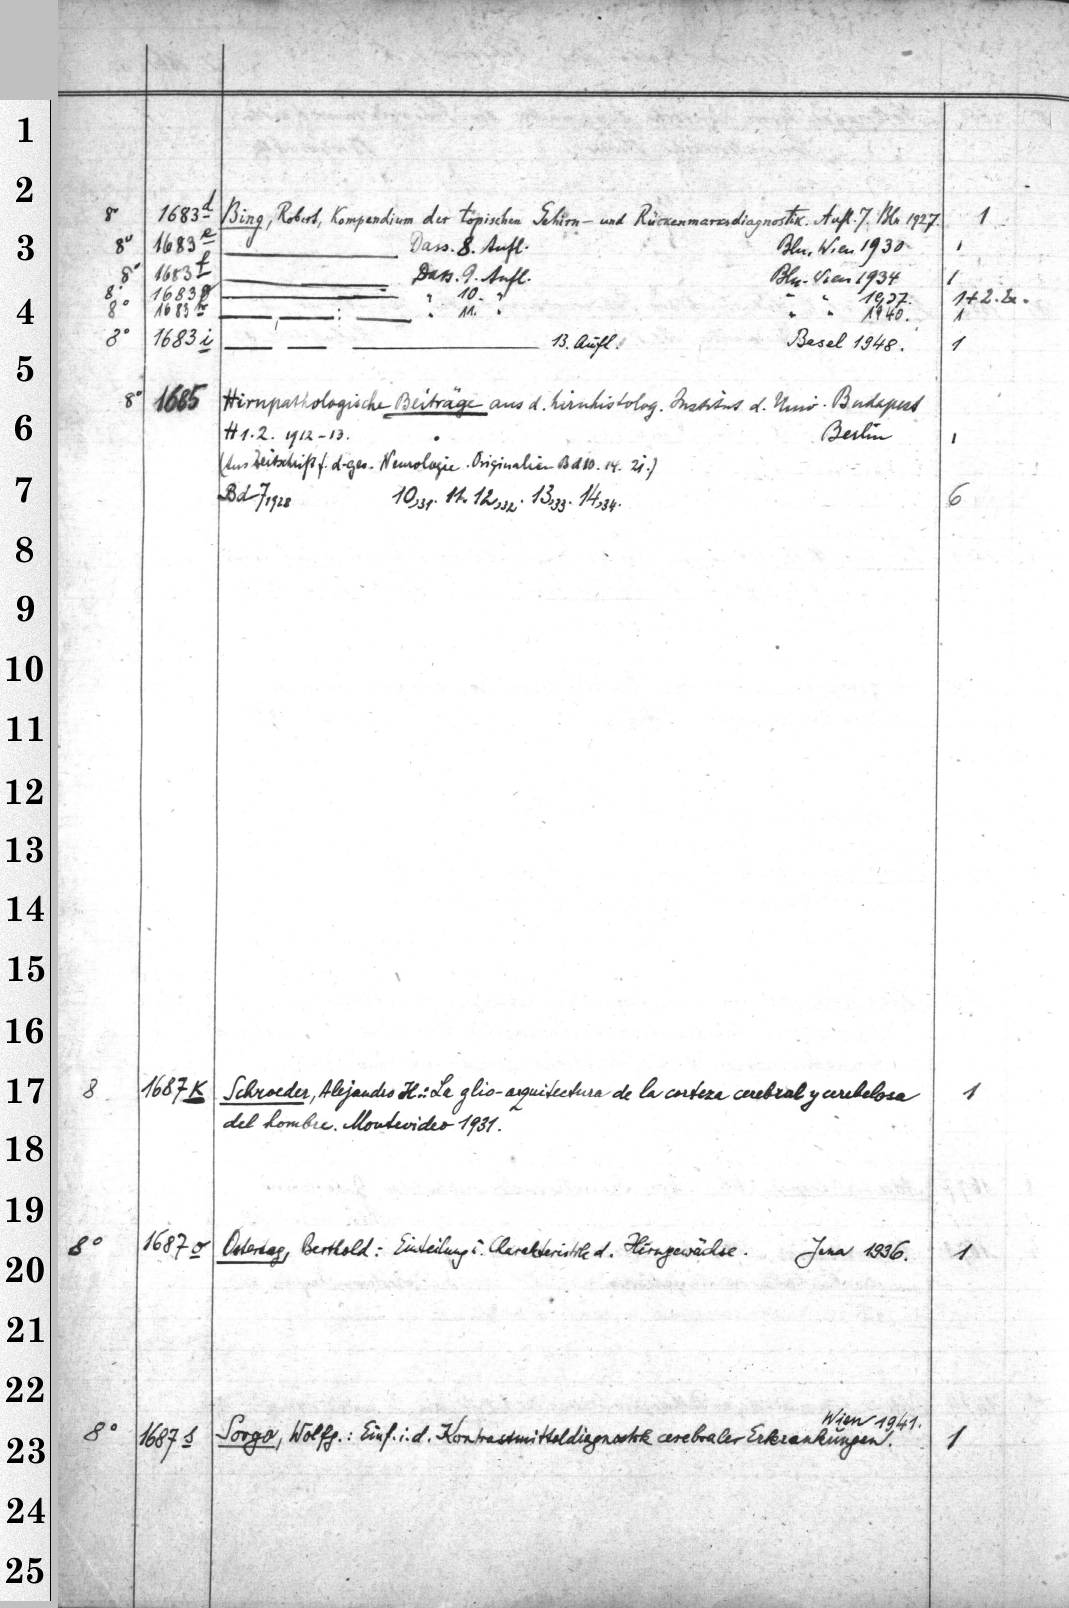 1
2
8° 1683d Bing, Robert, Kompendium der topischen Gehirn- und Rückenmarksdiagnostik. Aufl. 7. Bln 1927. 1
3
8° 1683e Dass. 8. Aufl. Bln. Wien 1930 1
8° 1683f Dass. 9. Aufl. Bln. Wien 1934 1
8° 1683g " 10. " " " 1937. 1+2. Ex.
4
8° 1683h " 11. " " " 1940. 1
8° 1683i 13. Aufl. Basel 1948. 1
5
8° 1685 Hirnpathologische Beiträge aus d. hirnhistolog. Instituts d. Univ. Budapest
6
H 1. 2. 1912-13. Berlin 1
(Aus Zeitschrift f. d. ges. Neurologie. Originalien Bd 10. 14. 21.)
7
Bd 7,1928 10,31. 11. 12,32. 13,33. 14,34. 6
8
9
10
11
12
13
14
15
16
17
8 1687K Schroeder, Alejandro H.: La glio-arquitectura de la corteza cerebral y cerebelosa 1
del hombre. Montevideo 1931.
18
19
8° 1687o Ostertag, Berthold: Einteilung u. Charakteristik d. Hirngewächse. Jena 1936. 1
20
21
22
Wien 1941.
8° 1687s Sorgo, Wolfg.: Einf. i. d. Kontrastmitteldiagnostik cerebraler Erkrankungen. 1
23
24
25